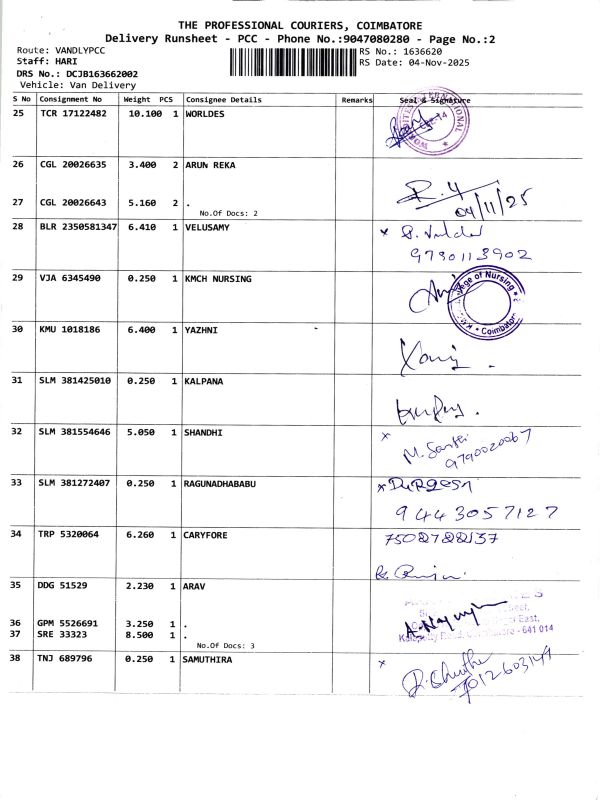 THE PROFESSIONAL COURIERS, COIMBATORE
Delivery Runsheet - PCC - Phone No.:9047080280 - Page No.:2
Route: VANDLYPCC
RS No.: 1636620
Staff: HARI
RS Date: 04-Nov-2025
DRS No.: DCJB163662002
Vehicle: Van Delivery
S No Consignment No Weight PCS Consignee Details Remarks Seal & Signature
25 TCR 17122482 10.100 1 WORLDES
26 CGL 20026635 3.400 2 ARUN REKA
27 CGL 20026643 5.160 2 .
04/11/25
No.Of Docs: 2
28 BLR 2350581347 6.410 1 VELUSAMY
9790113902
29 VJA 6345490 0.250 1 KMCH NURSING
College of Nursing
Coimbatore
30 KMU 1018186 6.400 1 YAZHNI
31 SLM 381425010 0.250 1 KALPANA
32 SLM 381554646 5.050 1 SHANDHI
9790020067
33 SLM 381272407 0.250 1 RAGUNADHABABU
9443057127
34 TRP 5320064 6.260 1 CARYFORE
35 DDG 51529 2.230 1 ARAV
36 GPM 5526691 3.250 1 .
37 SRE 33323 8.500 1 .
- 641 014
No.Of Docs: 3
38 TNJ 689796 0.250 1 SAMUTHIRA